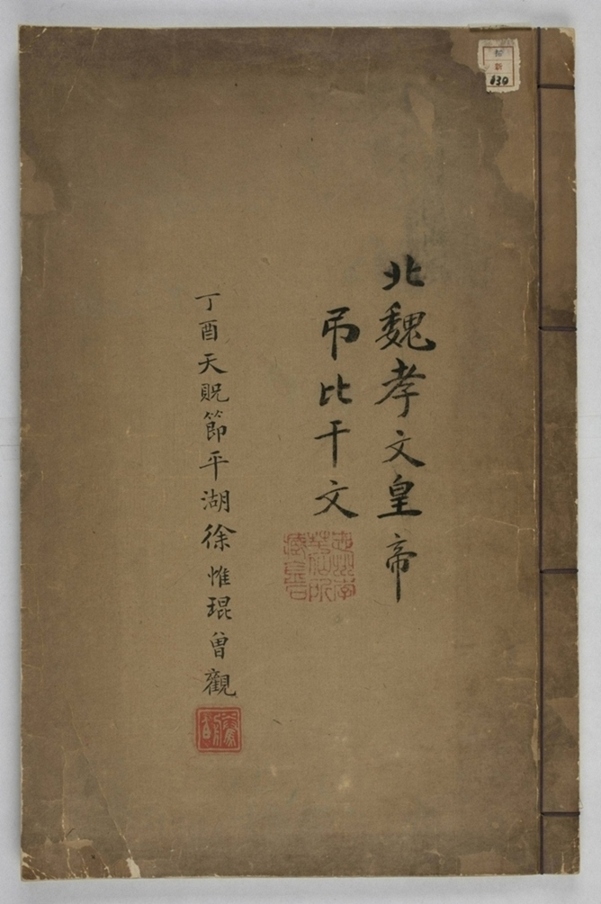 北魏孝文皇帝
吊比干文
丁酉天貺節平湖徐惟琨曾觀
130